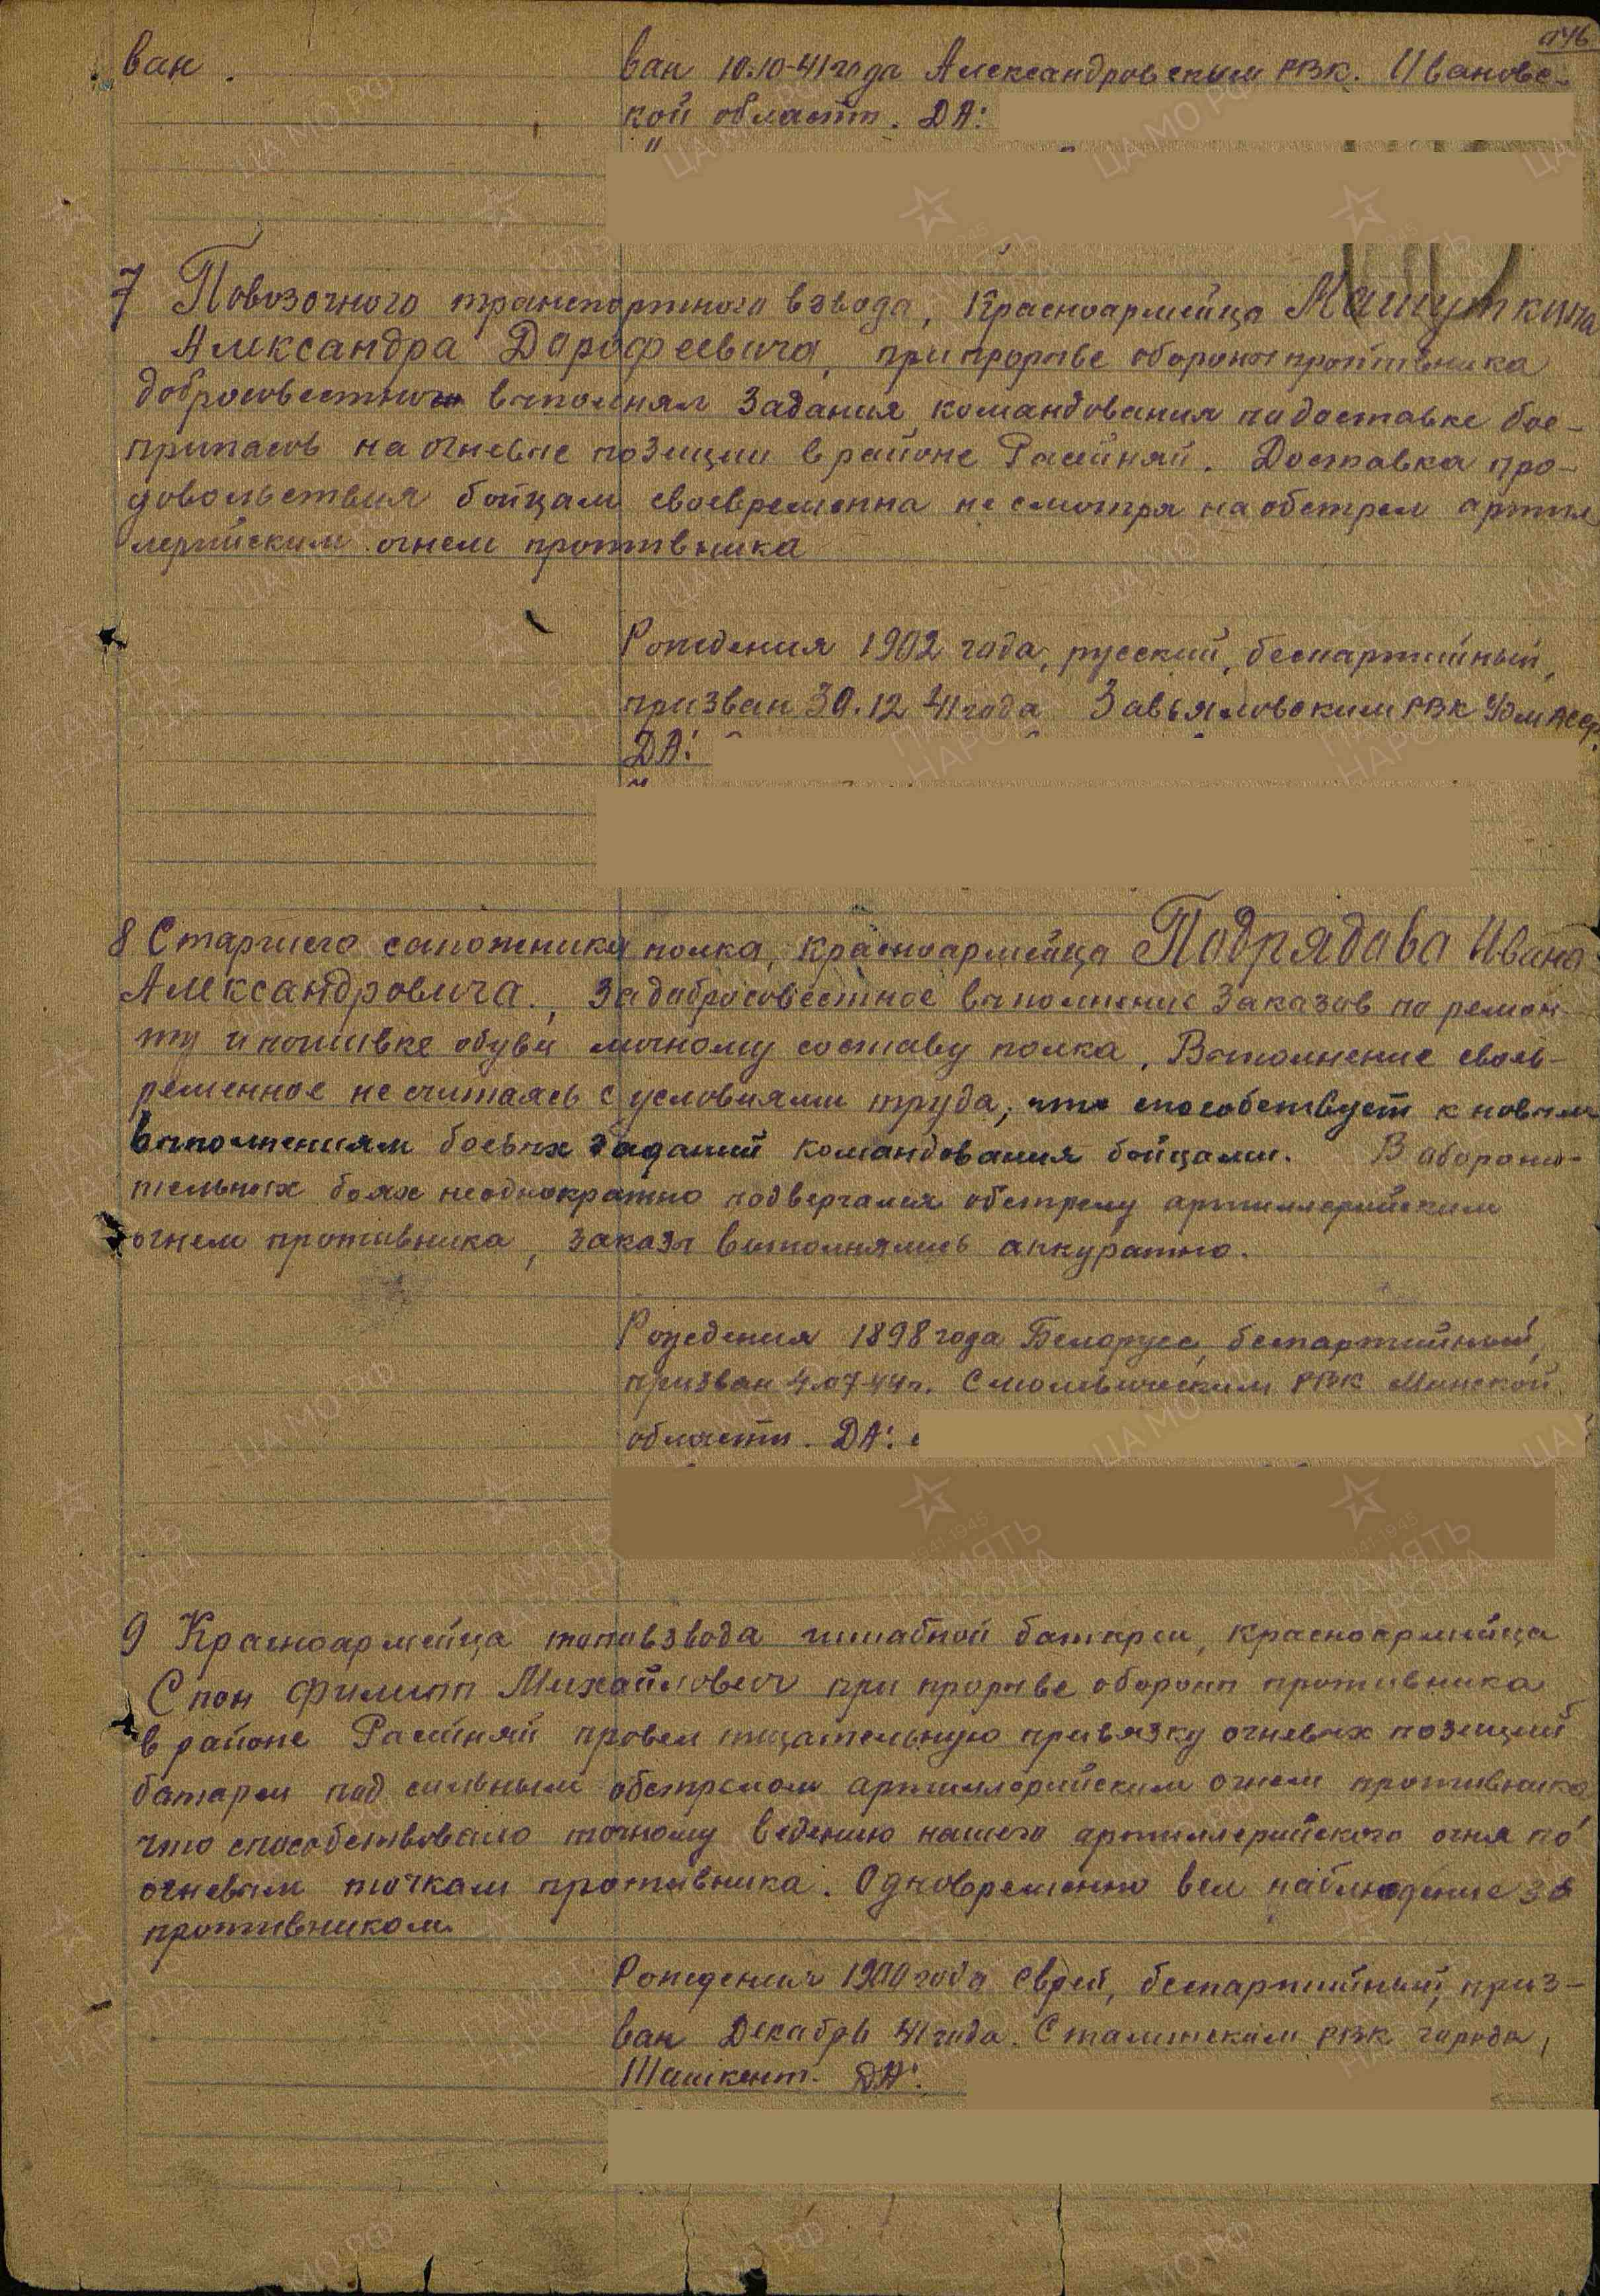 ван.
ван 10.10-41 года Александровским РВК. Ивановс-
кой област. ДА:
7 Повозочного транспортного взвода, Красноармейца Машуткина
Александра Дорофеевича, при прорыве обороны противника
добросовестного выполнял задания командования по доставке бое-
припасов на огневые позиции в районе Расейняй. Доставка про-
довольствия бойцам своевременна не смотря на обстрел артил
лерийским огнем противника
Рождения 1902 года, русский, беспартийный,
призван 30.12 41 года Завьяловским РВК УдмАССР.
ДА:
8 Старшего сапожника полка, красноармейца Подрядова Ивана
Александровича., За добросовестное выполнение заказов по ремон-
ту и пошивке обуви личному составу полка. Выполнение свое-
ременное не считаясь с условиями труда, что способствует к новым
выполнениям боевых заданий командования бойцами. В оборони-
тельных боях неоднократно подвергался обстрелу артиллерийским
огнем противника, заказы выполнялись аккуратно.
Рождения 1898 года Белорусс, беспартийный,
призван 4.07-44г. Смолевическим РВК Минской
области. ДА:
9 Красноармейца топовзвода штабной батареи, красноармейца
Спон Филипп Михайлович при прорыве обороны противника
в районе Расейняй провел тщательную привязку огневых позиций
батареи под сильным обстрелом артиллерийским огнем противника
что способствовало точному ведению нашего артиллерийского огня по
огневым точкам противника. Одновременно вел наблюдение за
противником.
Рождения 1900 года еврей, беспартийный, приз-
ван Декабрь 41 года. Сталинским РВК города,
Ташкент. ДА:
ЦА МО РФ
ПАМЯТЬ
НАРОДА
1941-1945